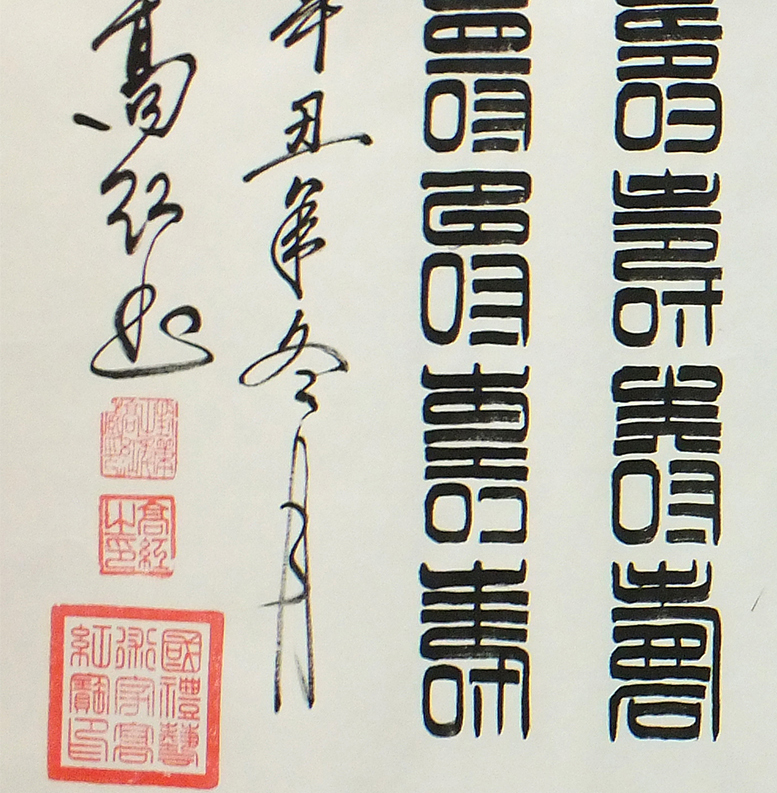 壽壽壽壽
壽壽壽壽
辛丑年冬月
高红书
高紅
之印
國禮藝
術家高
紅印